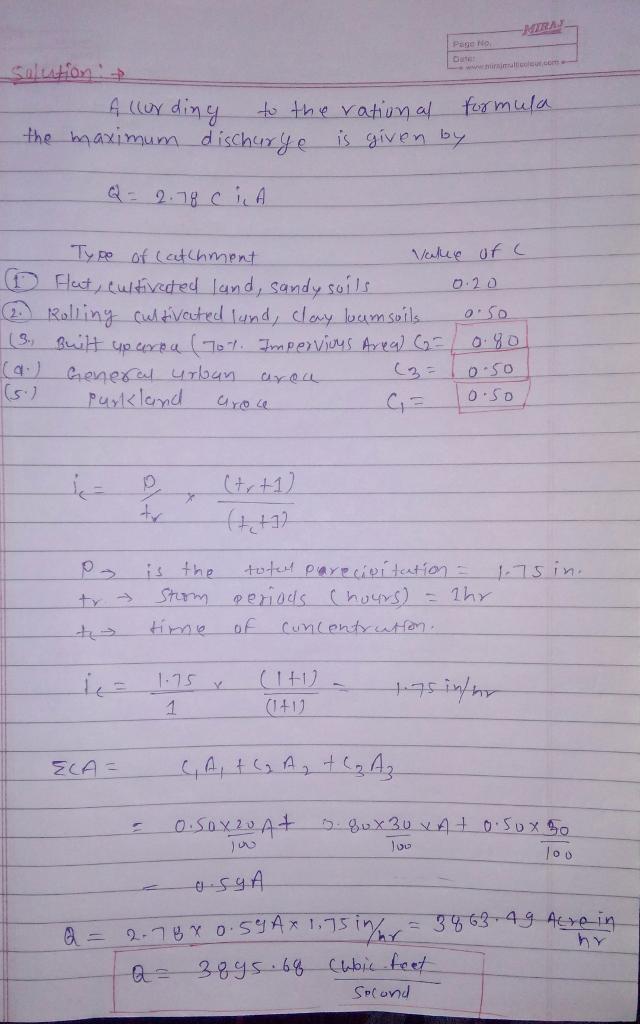 MIRAJ
Page No.
Date:
www.mirajmulticolour.com
Solution: →
According to the rational formula
the maximum discharge is given by
Q = 2.78 C ic A
Type of catchment Value of C
(1) Flat, cultivated land, sandy soils 0.20
(2.) Rolling cultivated land, clay loam soils 0.50
(3.) Built up area (70%. Impervious Area) C2 = 0.80
(4.) General urban area C3 = 0.50
(5.) Parkland area C1 = 0.50
ic = P/tr × (tr+1)/(tc+1)
P → is the total parecipitation = 1.75 in.
tr → Strom periods (hours) = 1hr
tc → time of concentration.
ic = 1.75/1 × (1+1)/(1+1) = 1.75 in/hr
ΣCA = C1A1 + C2A2 + C3A3
= 0.50×20/100 A + 0.80×30/100 × A + 0.50×50/100
= 0.59A
Q = 2.78 × 0.59A × 1.75 in/hr = 3863.49 Acre in/hr
Q = 3895.68 Cubic feet/Second